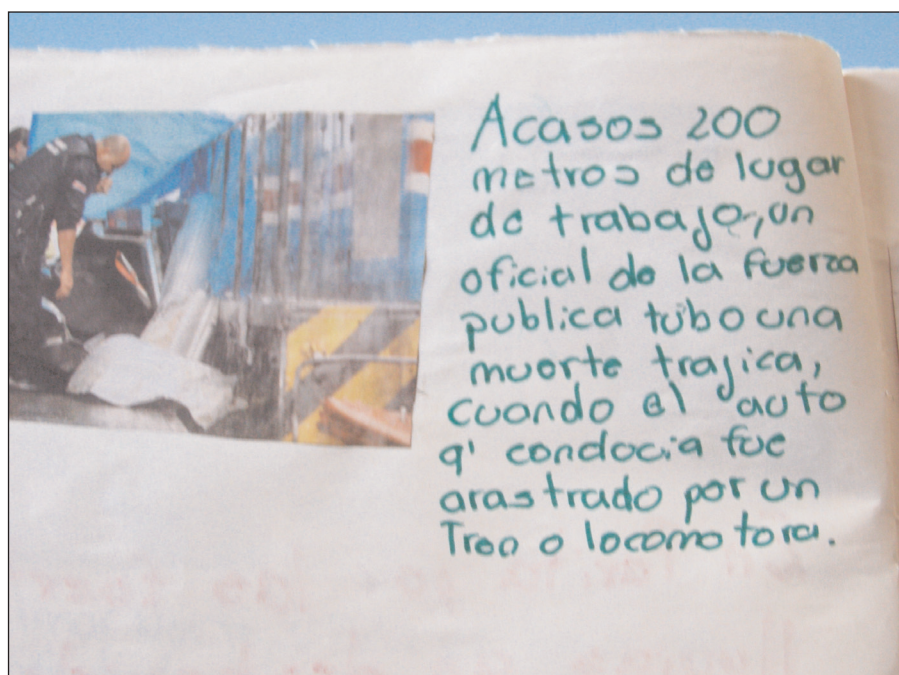 Acasos 200
metros de lugar
de trabajo, un
oficial de la fuerza
publica tubo una
muerte trajica,
cuando el auto
q' conducia fue
arastrado por un
Tren o locomotora.